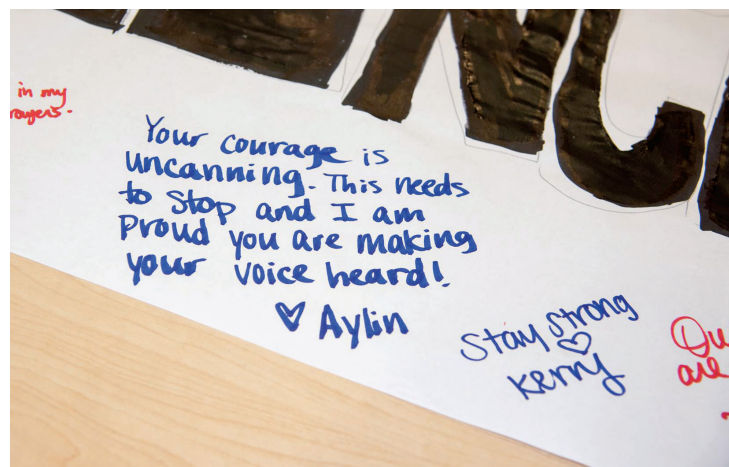 NC
in my
Your courage is
uncanning. This needs
to stop and I am
Proud you are making
your voice heard!
♡ Aylin
Stay strong
♡
Kerry
Ou
are